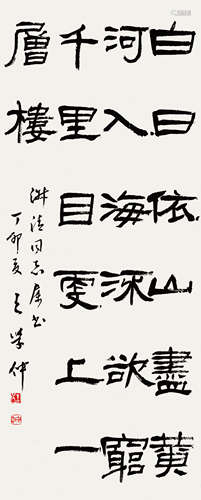 白日依山盡黄
河入海流欲窮
千里目更上一
層樓
淑清同志属书
丁卯夏王学仲